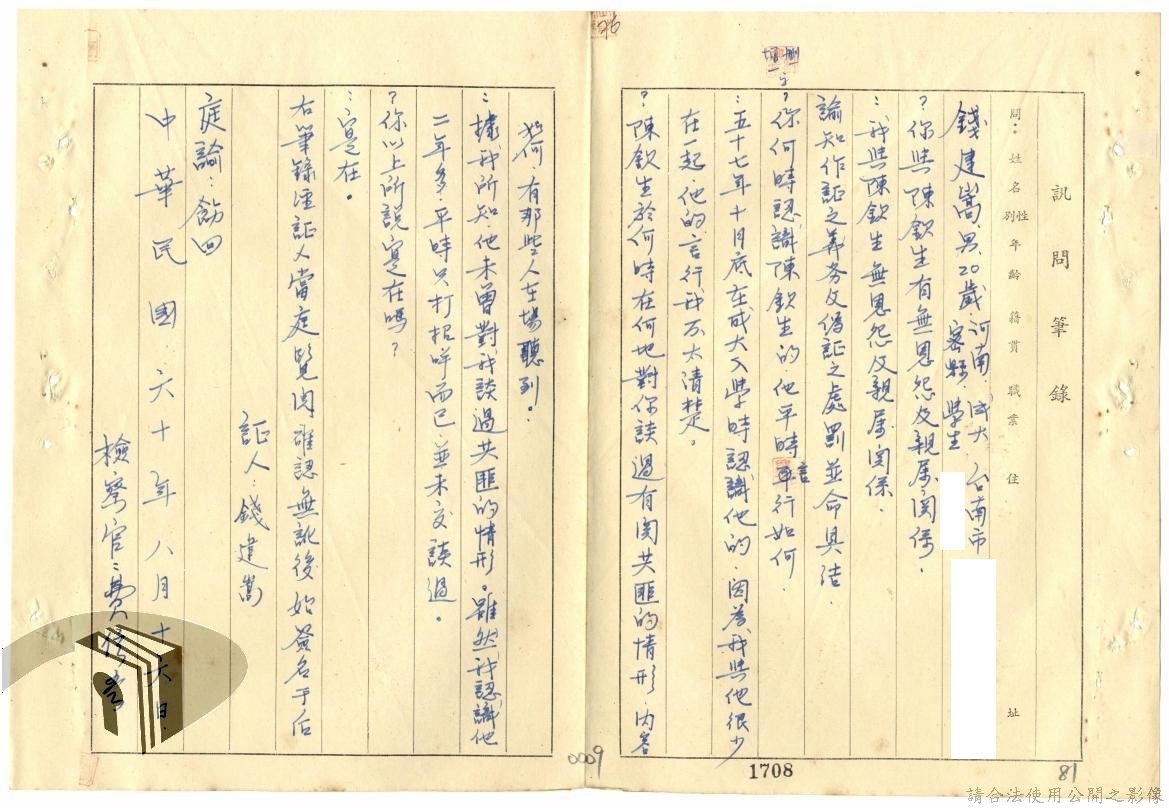 訊問筆錄
問：姓名 性別 年齡 籍貫 職業 住址
錢建嵩 男 20歲 河南密縣 成大學生 台南市
？你與陳欽生有無恩怨及親屬関係．
：我與陳欽生無恩怨及親屬関係．
諭知作証之義務及偽証之處罰並命具结．
？你何時認識陳欽生的．他平時言行如何
增刪一字
：五十七年十月底在成大入學時認識他的．因為我與他很少
在一起．他的言行我不太清楚。
？陳欽生於何時在何地對你談過有関共匪的情形．内容
如何 有那些人在場聽到．
：據我所知．他未曾對我談過共匪的情形。雖然我認識他
二年多．平時只打招呼而已．並未交談過。
？你以上所說寔在嗎？
：寔在。
右筆錄經証人當庭覽閱確認無訛後始簽名于后
証人：錢建嵩
庭諭：飭回
中華民國六十年八月十六日．
檢察官：費
26
0009
1708
81
請合法使用公開之影像